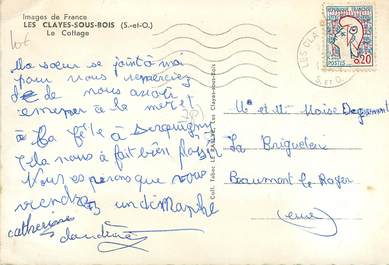 Images de France
LES CLAYES-SOUS-BOIS (S.-et-O.)
Le Cottage
10f
Ma sœur se joint à moi
pour vous remercier
de de nous avoir
emener à la mer et
à la fête à Serquigny
Cela nous à fait bien plaisir
Nous esperons que vous
viendrez un dimanche
catherine
claudine
Coll. Tabac Les Clayes-sous-Bois
REPUBLIQUE FRANÇAISE
0,20
POSTES
LES CLAYES
S. et O.
Mr et Mme Moise
La Briqueterie
Beaumont le Roger
(eure)